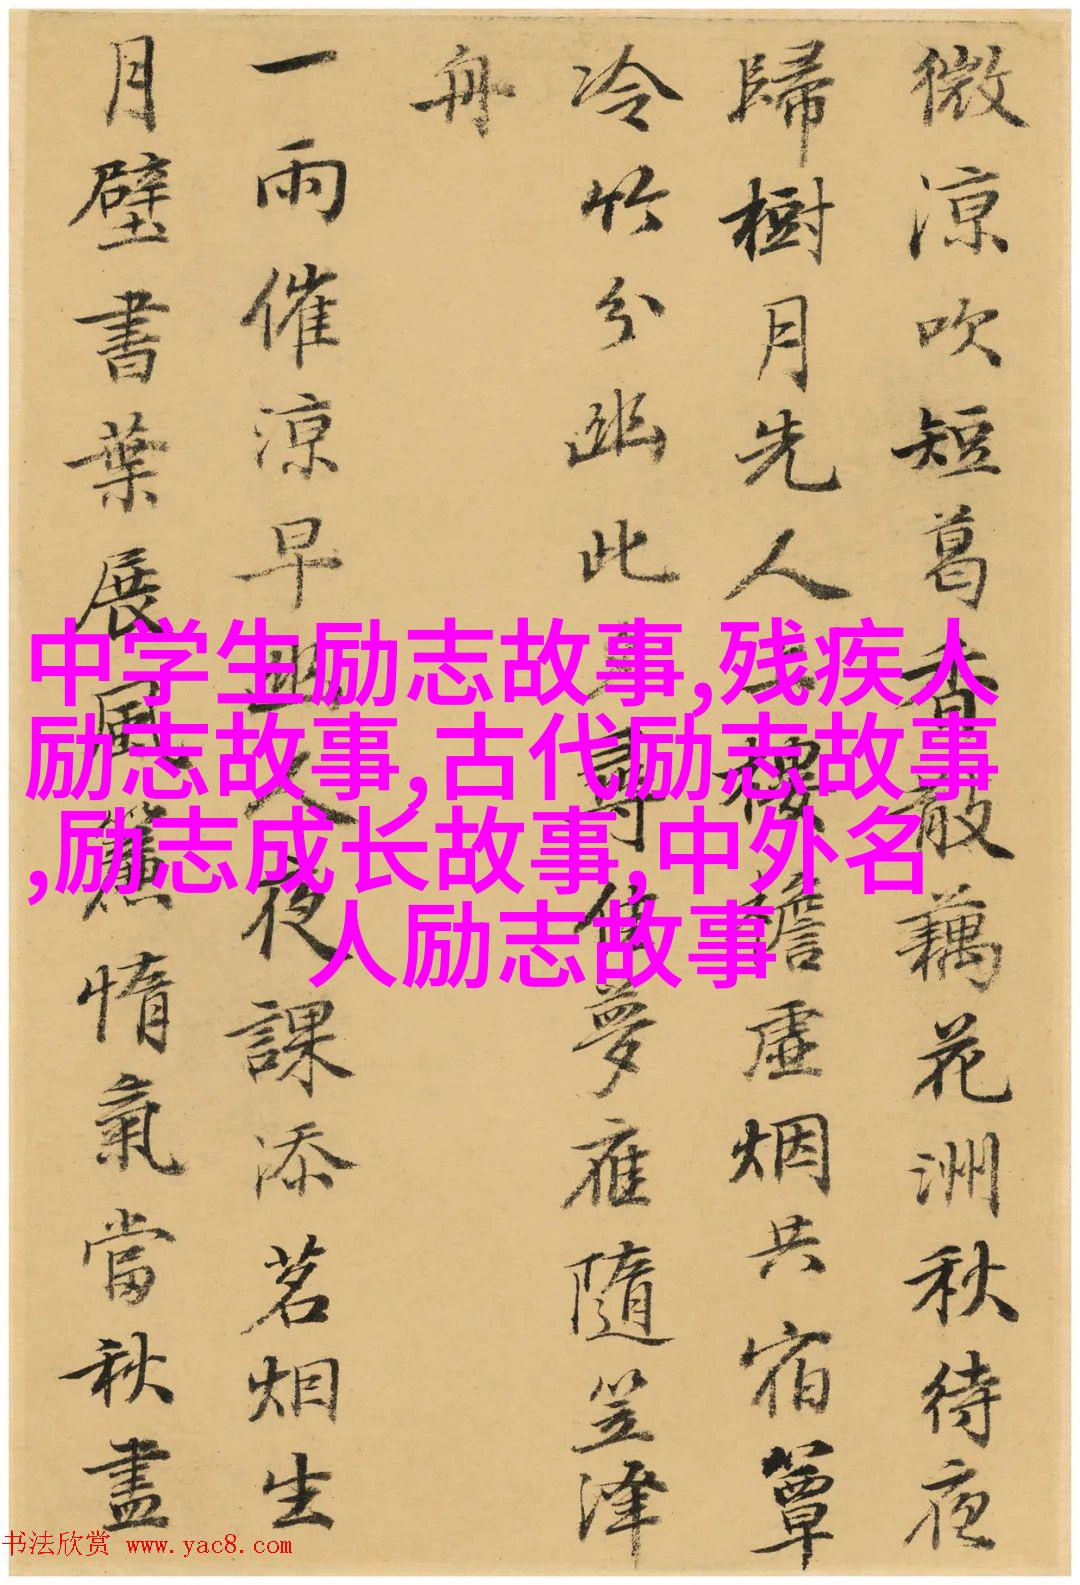 微涼吹短葛香散藕花洲秋待夜
歸樹月先人上樓檐虛烟共宿簟
冷竹分幽此尋夢隨笠澤
舟
一雨催涼早人夜課添茗烟生
月壁書葉展風簾惰氣當秋盡
中学生励志故事,残疾人
励志故事,古代励志故事
,励志成长故事,中外名
人励志故事
书法欣赏 www.yac8.com